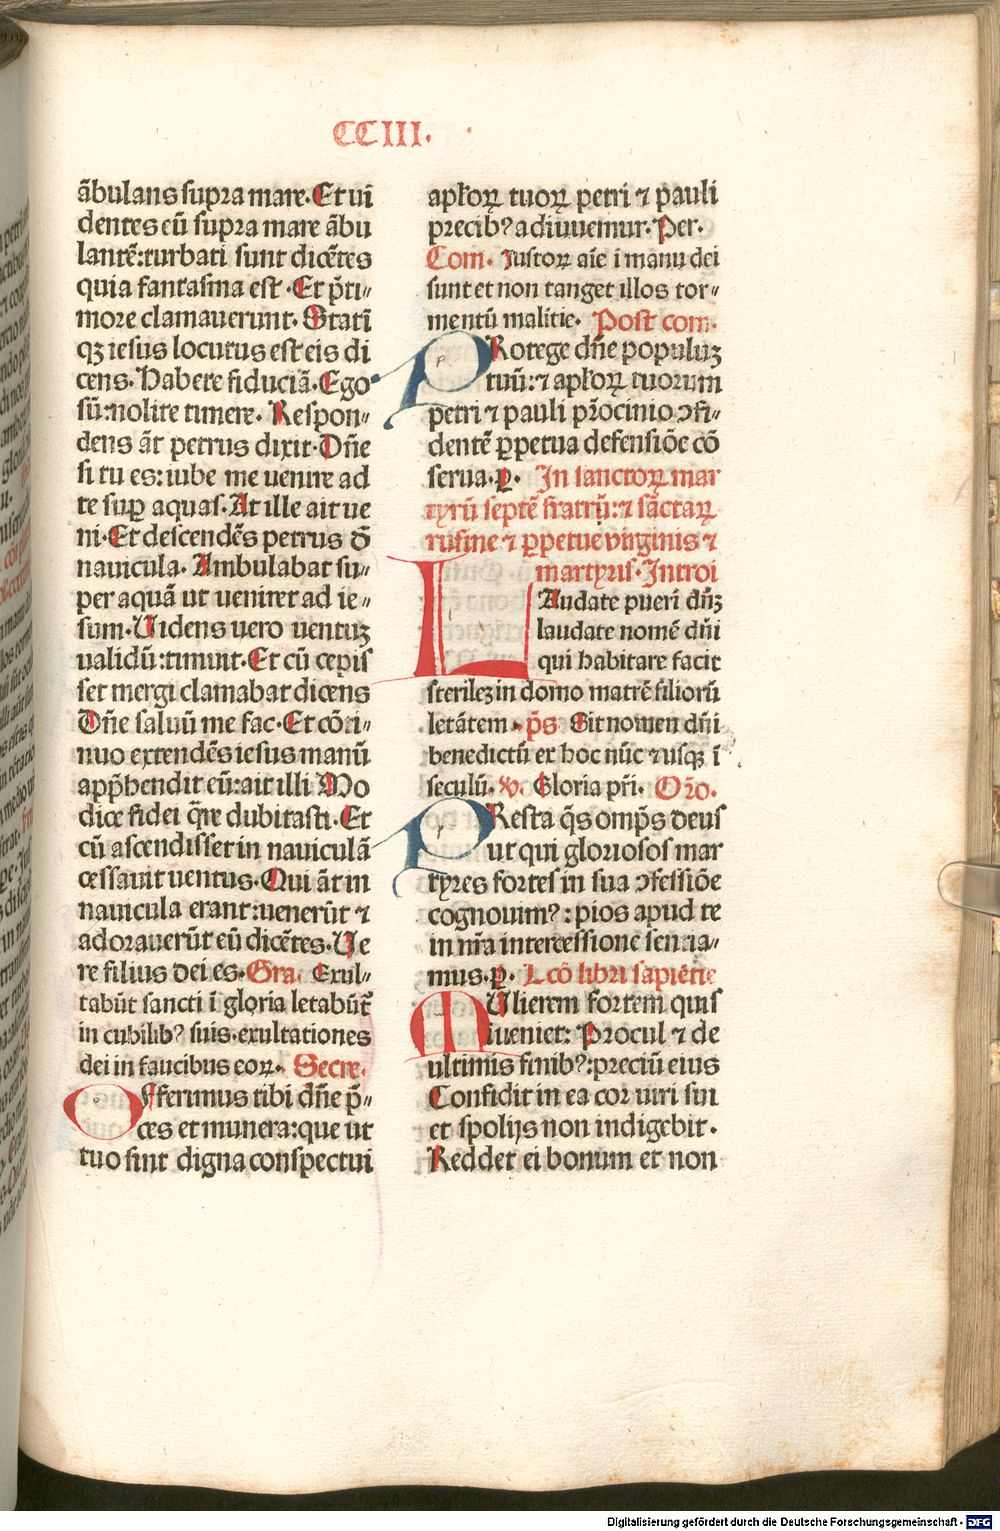 CCIII.
ãbulans supra mare. Et uĩ
dentes eũ supra mare ãbu
lantẽ: turbati sunt dicẽtes
quia fantasma est. Et p̃ ti⸗
more clamauerunt. Stati
qꝫ iesus locutus est eis di
cens. Habete fiduciã. Ego
sũ: nolite timere. Respon⸗
dens ãt petrus dixit. Dñe
si tu es: iube me uenire ad
te suꝑ aquas. At ille ait ue
ni. Et descendẽs petrus d̃
nauicula. Ambulabat su⸗
per aquã ut ueniret ad ie⸗
sum. Uidens uero uentuꝫ
validũ: timuit. Et cũ cepis
set mergi clamabat dicens
Dñe saluũ me fac. Et cõti⸗
nuo extendẽs iesus manũ
app̃hendit eũ: ait illi Mo
dice fidei q̃re dubitasti. Et
cũ ascendisset in nauiculã
cessauit uentus. Qui ãt in
nauicula erant: uenerũt ⁊
adorauerũt eũ dicẽtes. Ue
re filius dei es. Gra. Exul⸗
tabũt sancti ĩ gloria letabũt̃
in cubilibꝰ suis. exultationes
dei in faucibus eoꝝ. Secre.
Offerimus tibi dñe p̃⸗
ces et munera: que ut
tuo sint digna conspectui
apłoꝝ tuoꝝ petri ⁊ pauli
precibꝰ adiuuemur. Per.
Com. Iustoꝝ aĩe i manu dei
sunt et non tanget illos tor⸗
mentũ malitie. Post com.
PRotege dñe populuꝫ
tuũ: ⁊ apłoꝝ tuorum
petri ⁊ pauli pr̃ocinio ꝯfi⸗
dentẽ ꝑpetua defensiõe cõ
serua. ꝑ. In sanctoꝝ mar
tyrũ septẽ fratrũ: ⁊ sãctaꝝ
rufine ⁊ ꝑpetue virginis ⁊
martyris. Introi
LAudate pueri dñꝫ
laudate nomẽ dñi
qui habitare facit
sterileꝫ in domo matrẽ filiorũ
letãtem. p̃s Sit nomen dñi
benedictũ ex hoc nũc ⁊ usqꝫ ĩ
seculũ. ꝟ. Gloria pr̃i. Oꝛ̃o.
PResta q̃s omp̃s deus
ut qui gloriosos mar
tyres fortes in sua ꝯfessiõe
cognouimꝰ: pios apud te
in nr̃a intercessione sentia⸗
mus. ꝑ. Lc̃õ libri sapiẽtie
MUlierem fortem quis
iueniet: Procul ⁊ de
ultimis finibꝰ: preciũ eius
Confidit in ea cor uiri sui
et spolijs non indigebit.
Reddet ei bonum et non
Digitalisierung gefördert durch die Deutsche Forschungsgemeinschaft - DFG